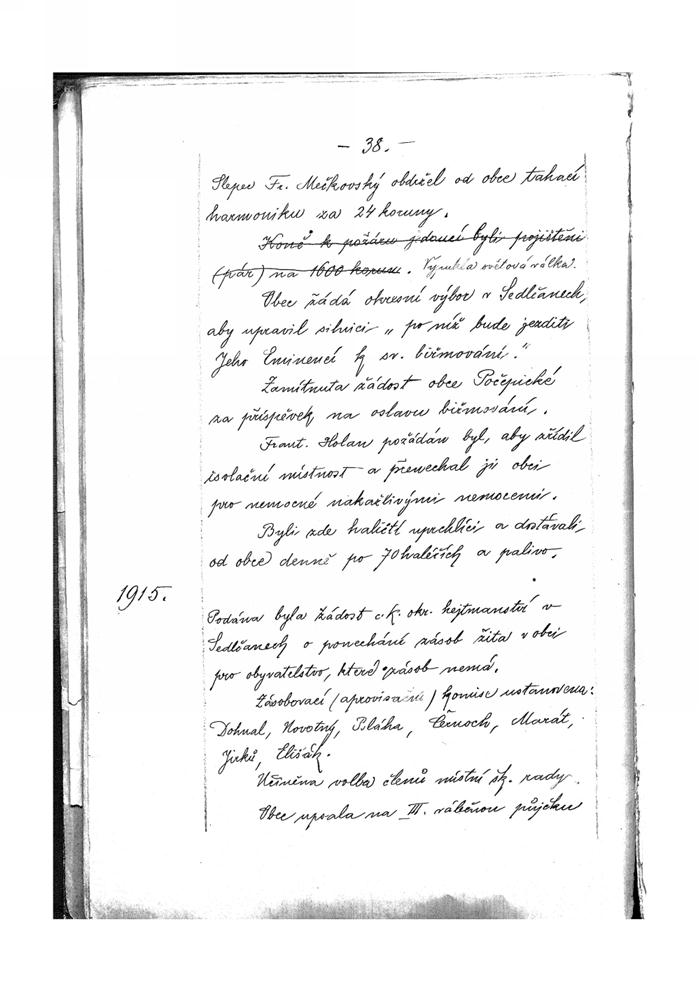 – 38. –
Slepec Fr. Mečkovský obdržel od obce tahací
harmoniku za 24 koruny.
Koně k požáru jdoucí byli pojištěni
(pár) na 1600 korun. Vypukla světová válka.
Obec žádá okresní výbor v Sedlčanech,
aby upravil silnici „po níž bude jezditi
Jeho Eminencí k sv. biřmování."
Zamítnuta žádost obce Počepické
za příspěvek na oslavu biřmování.
Frant. Holan požádán byl, aby zřídil
isolační místnost a přenechal ji obci
pro nemocné nakažlivými nemocemi.
Byli zde haličtí uprchlíci a dostávali
od obce denně po 70 haléřích a palivo.
1915.
Podána byla žádost c.k. okr. hejtmanství v
Sedlčanech o ponechání zásob žita v obci
pro obyvatelstvo, které zásob nemá.
Zásobovací (aprovisační) komise ustanovena:
Dohnal, Novotný, Bláha, Černoch, Marát,
Jirků, Elišák.
Učiněna volba členů místní šk. rady.
Obec upsala na III. válečnou půjčku